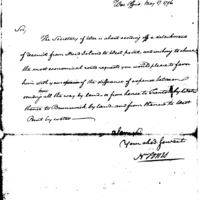 War Office May 17 1796
Sir,
The Secretary of War is about sending off a detachment
of recruits from Mud Island to West point, and wishing to choose
the most economical route requests you would please to favor
him with your opinion of the difference of expense between
sending all the way by land or from hence to Trenton by water
thence to Brunswick by land and from thence to West
Point by water
I am Sir
Your obed Servant